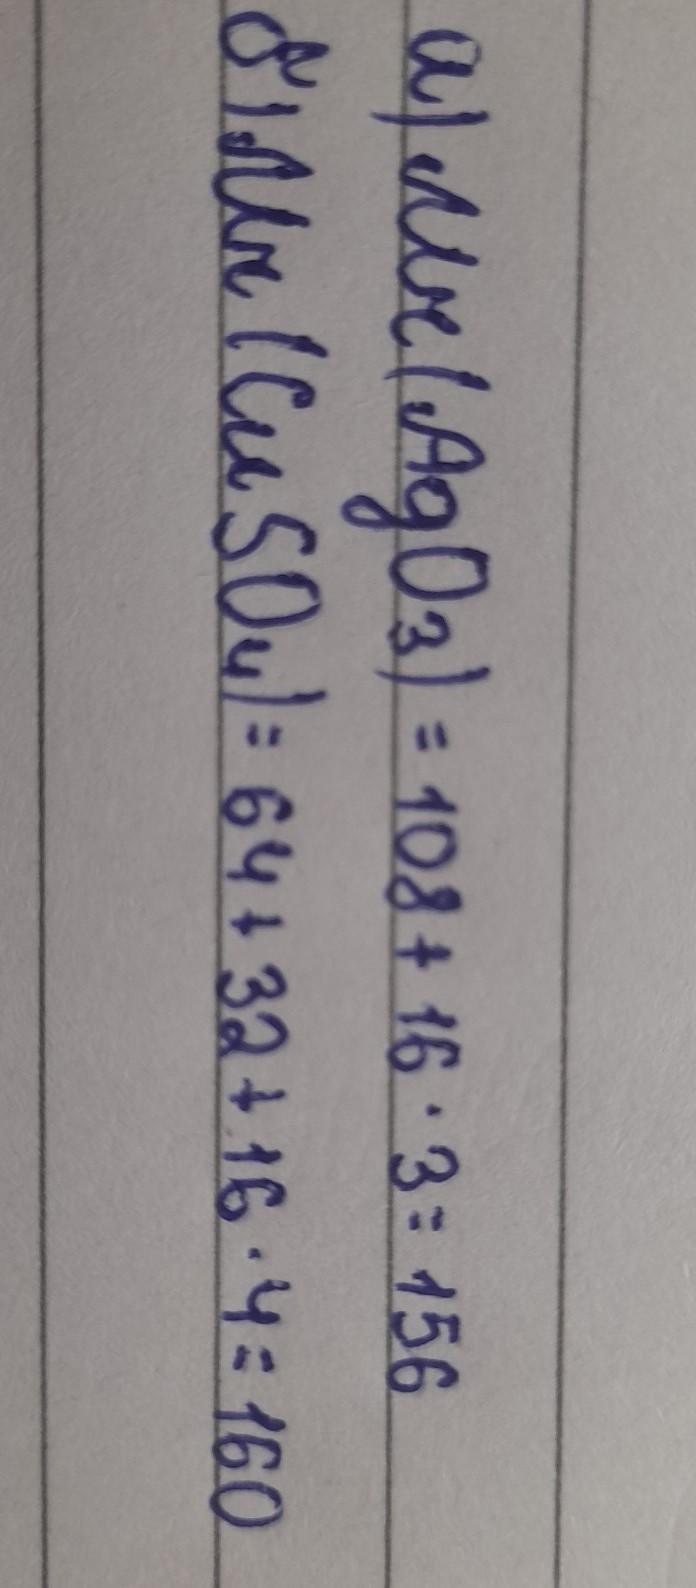 а) Mr(AgO₃) = 108 + 16 · 3 = 156
б) Mr(CuSO₄) = 64 + 32 + 16 · 4 = 160